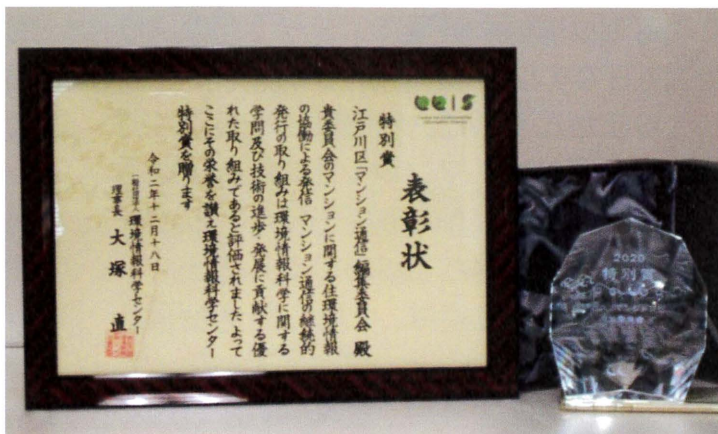 表彰状
特別賞
江戸川区「マンション通信」編集委員会 殿
貴委員会のマンションに関する住環境情報
の協働による発信 マンション通信の継続的
発行の取り組みは環境情報科学に関する
学問及び技術の進歩 発展に貢献する優
れた取り組みであると評価されました よって
ここにその栄誉を讃え環境情報科学センター
特別賞を贈ります
令和二年十二月十八日
一般社団法人 環境情報科学センター
理事長 大塚 直
CEIS
2020
特別賞